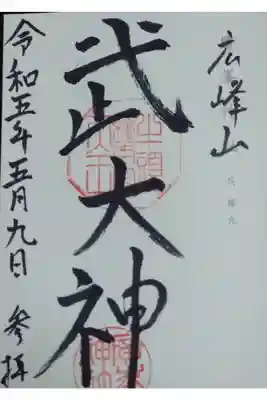 広峰山
武大神
令和五年五月九日 参拝